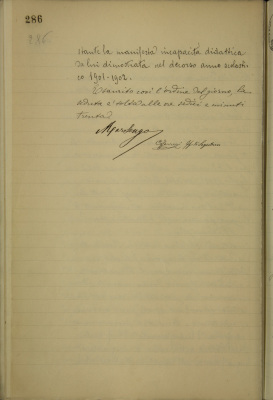 286
286
stante la manifesta incapacità didattica
da lui dimostrata nel decorso anno scolasti-
co 1901-1902.
Esaurito così l'ordine del giorno, la
seduta è sciolta alle ore sedici e minuti
trenta.